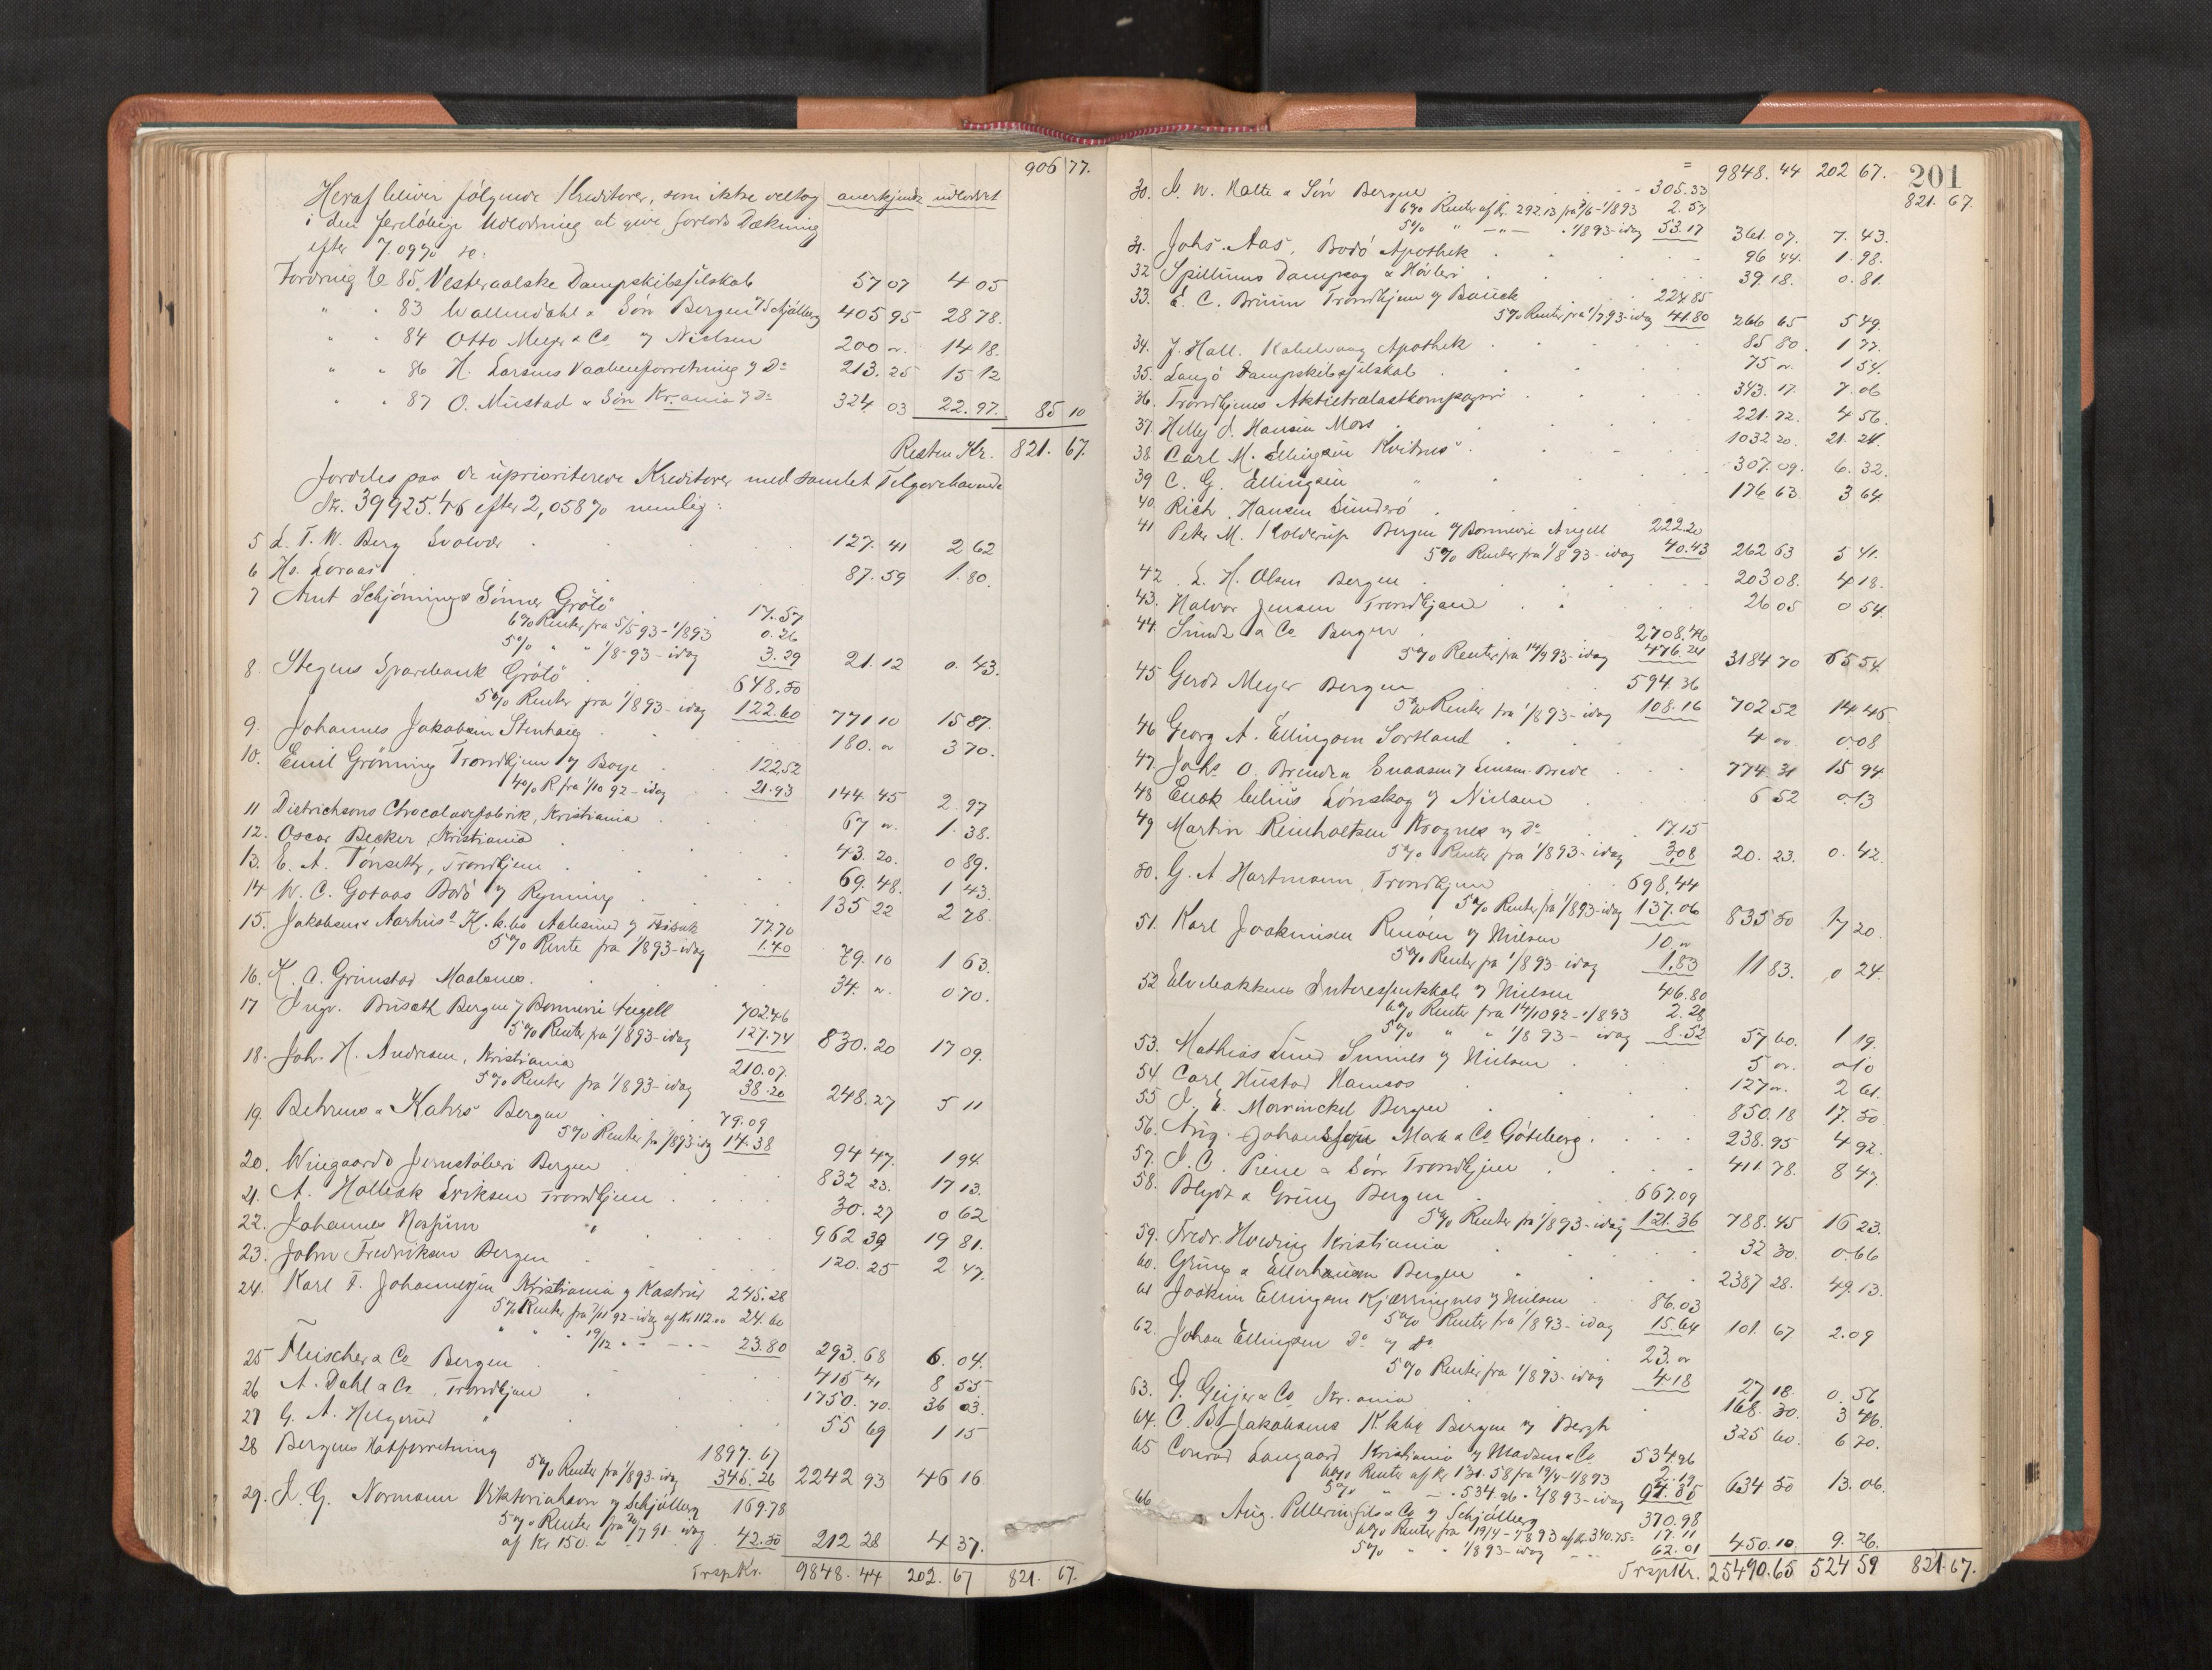 906 77.
Heraf bliver følgende Kreditorer, som ikke deltog anerkjendt udloddet
i den foreløbige Udlodning at give forlods Dækning
efter 7.09% so:
Fordring No 85. Vesteraalske Dampskibsselskab 57 07 4 05
" " 83 Wallendahl & Søn Bergen v/ Schjølberg 405 95 28 78.
" " 84 Otto Meyer & Co v/ Nielsen 200 " 14 18.
" " 86 H. Larsens Vaabenforretning v/ Do 213. 25 15 12
" " 87 O. Mustad & Søn Kr.ania v/ Do 324 03 22. 97. 85 10
Resten Kr. 821. 67.
fordeles paa de uprioriterede Kreditorer med samlet Tilgodehavende
Kr. 39925.46 efter 2,058% nemlig:
5 L. T. W. Berg Svolvær 127. 41 2 62
6 Ho. Loraas 87. 59 1. 80.
7 Arnt Schjønings Sønner Grøtø 17.57
6% Renter fra 5/5 93 - 1/8 93 0.26
5% " " 1/8 - 93 - idag 3.29 21. 12 0. 43.
8. Stegens Sparebank Grøtø 648.50
5% Renter fra 1/8 93 - idag 122.60 771 10 15 87.
9. Johannes Jakobsen Stenhaug 180. " 3 70.
10. Emil Grønning Trondhjem v/ Boye 122,52
4% R fra 1/10 92 - idag 21.93 144. 45 2 97
11 Dietrichsons Chocoladefabrik, Kristiania 67 " 1. 38.
12. Oscar Becker, Kristiania 43. 20. 0 89.
13. E. A. Tønseth, Trondhjem 69. 48. 1 43.
14 W. C. Gotaas Bodø v/ Rynning 135 22 2 78.
15. Jakobsens Aarhus K. k. bo Aalesund v/ 77.70
5% Rente fra 1/8 93 - idag 1.40 79. 10 1 63.
16. K. A. Grimstad Maalsnes. 34. " 0 70.
17 Ingv. Busath Bergen v/ Bonnevie Angell 702.46
5% Renter fra 1/8 93 - idag 127.74 830. 20 17 09.
18. Joh. H. Andresen, Kristiania 210.07.
5% Renter fra 1/8 93 - idag 38.20 248. 27 5 11
19. Behrens & Kahrs Bergen 79.09
5% Renter fra 1/8 93 idag 14.38 94 47. 1 94
20. Wingaards Jernstøberi Bergen 832 23. 17 13.
21. A. Holbæk Eriksen Trondhjem 30. 27 0 62
22. Johannes " 962 39 19 81.
23. John Fredriksen Bergen 120. 25 2 47.
24. Karl F. Johannessen Kristiania v/ Kastrud 245.28
5% Renter fra 7/11 92 - idag af Kr 112.00 24.60
" " " 19/12 " " - - - 23.80 293. 68 6. 04.
25 Fleischer & Co Bergen 415 41 8 55
26 A. Dahl & Co, Trondhjem 1750. 70. 36 03.
27 G. A. Helgerud " 55 69 1 15
28 Bergens Hatforretning 1897.67
5% Renter fra 1/8 93 - idag 345.26 2242 93 46 16
29. J. G. Normann Viktoriahavn v/ Schjølberg 169.78
5% Renter fra 20/7 91 - idag
af Kr 150. " 42.50 212 28 4 37.
Trsp Kr. 9848. 44 202. 67 821. 67.
= 9848. 44 202 67. 201
821. 67.
30. J. W. Holte & Søn Bergen 305.33
6% Renter af Kr. 292.13 fra 7/6 - 1/8 93 2.57
5% " - " - 1/8 93 - idag 53.17 361. 07. 7. 43.
31. Johs. Aas, Bodø Apothek 96 44. 1. 98.
32 Spillums Dampsag & Høvleri 39. 18. 0. 81.
33. E. C. Bruun Trondhjem v/ Bauck 224.85
5% Renter fra 1/7 93 - idag 41.80 266 65 5 49.
34. J. Hall. Kabelvaag Apothek 85 80. 1 77.
35. Langø Dampskibsselskab 75 " 1 54.
36. Trondhjems Aktietrælastkompagni 343. 17. 7. 06
37. Hellej d. Hansen Mors 221. 72. 4 56.
38. Carl M. Ellingsen Kvitnes 1032 20. 21. 24.
39 C. G. Ellingsen " 307. 09. 6. 32.
40. Rich. Hansen Sunderø 176 63. 3 64
41 Peter M. Kolderup Bergen v/ Bonnevie Angell 222.20
5% Renter fra 1/8 93 - idag 40.43 262 63 5 41.
42. L. H. Olsen Bergen 203 08. 4 18.
43. Halvor Jensen Trondhjem 26 05 0 54.
44. Sundt & Co Bergen 2708.46
5% Renter fra 14/9 93 - idag 476.24 3184 70 65 54.
45 Gerdt Meyer Bergen 594.36
5% Renter fra 1/8 93 - idag 108.16 702 52 14 46
46 Georg A. Ellingsen Sortland 4 " 0.08
47. Johs O. Brendea v/ Lensm. Brede 774. 31 15 94.
48 Enok Lønskog v/ Nielsen 6 52 0.13
49 Martin Reinholtsen Krognes v/ Do 17.15
5% Renter fra 1/8 93 - idag 3,08 20. 23. 0. 42.
50. G. A. Hartmann, Trondhjem 698,44
5% Renter fra 1/8 93 - idag 137.06 835 50 17 20.
51. Karl Joakimsen v/ Nielsen 10. "
5% Renter fra 1/8 93 - idag 1,83 11 83. 0 24.
52 Elvebakkens Interessentskab v/ Nielsen 46.80
6% Renter fra 14/10 92 - 1/8 93 2.28
5% " " 1/8 93 - idag 8.52 57 60. 1 19.
53. Mathias Lund v/ Nielsen 5 " 0.10
54. Carl Hustad Namsos 127 " 2 61.
55 J. E. Mowinckel Bergen 850. 18 17. 50
56. Aug. Johansson Mark & Co Göteborg. 238. 95 4 92.
57. J. C. Piene & Søn Trondhjem 411. 78. 8 47.
58. Blydt & Grung Bergen 667.09
5% Renter fra 1/8 93 - idag 121.36 788. 45 16 23.
59. Fredr. Hvedring Kristiania 32 30. 0.66
60. Grung & Ellerhusen Bergen 2387 28. 49. 13.
61 Joakim Ellingsen Kjærringnes v/ Nielsen 86.03
5% Renter fra 1/8 93 - idag 15.64 101. 67 2.09
62. Johan Ellingsen Do v/ Do 23. "
5% Renter fra 1/8 93 - idag 4.18 27 18. 0. 56
63. P. Geijer & Co Kr.ania 168. 30. 3 46.
64. C. B. Jakobsens K. kbo Bergen v/ Bergh 325 60. 6 70.
65 Conrad Langaard Kristiania v/ Madsen & Co 534.96
6% Renter af Kr 131.58 fra 19/4 - 1/8 93 2.19
5% " - " 534.96 " 1/8 93 - idag 97.35 634 50 13. 06.
66 Aug. Pellerin fils & Co v/ Schjølberg 370.98
6% Renter fra 19/4 - 1/8 93 af Kr. 340.75 = 17.11
5% " " 1/8 93 - idag - - 62.01 450. 10. 9. 26.
Trsp Kr. 25490.65 524 59 821. 67.